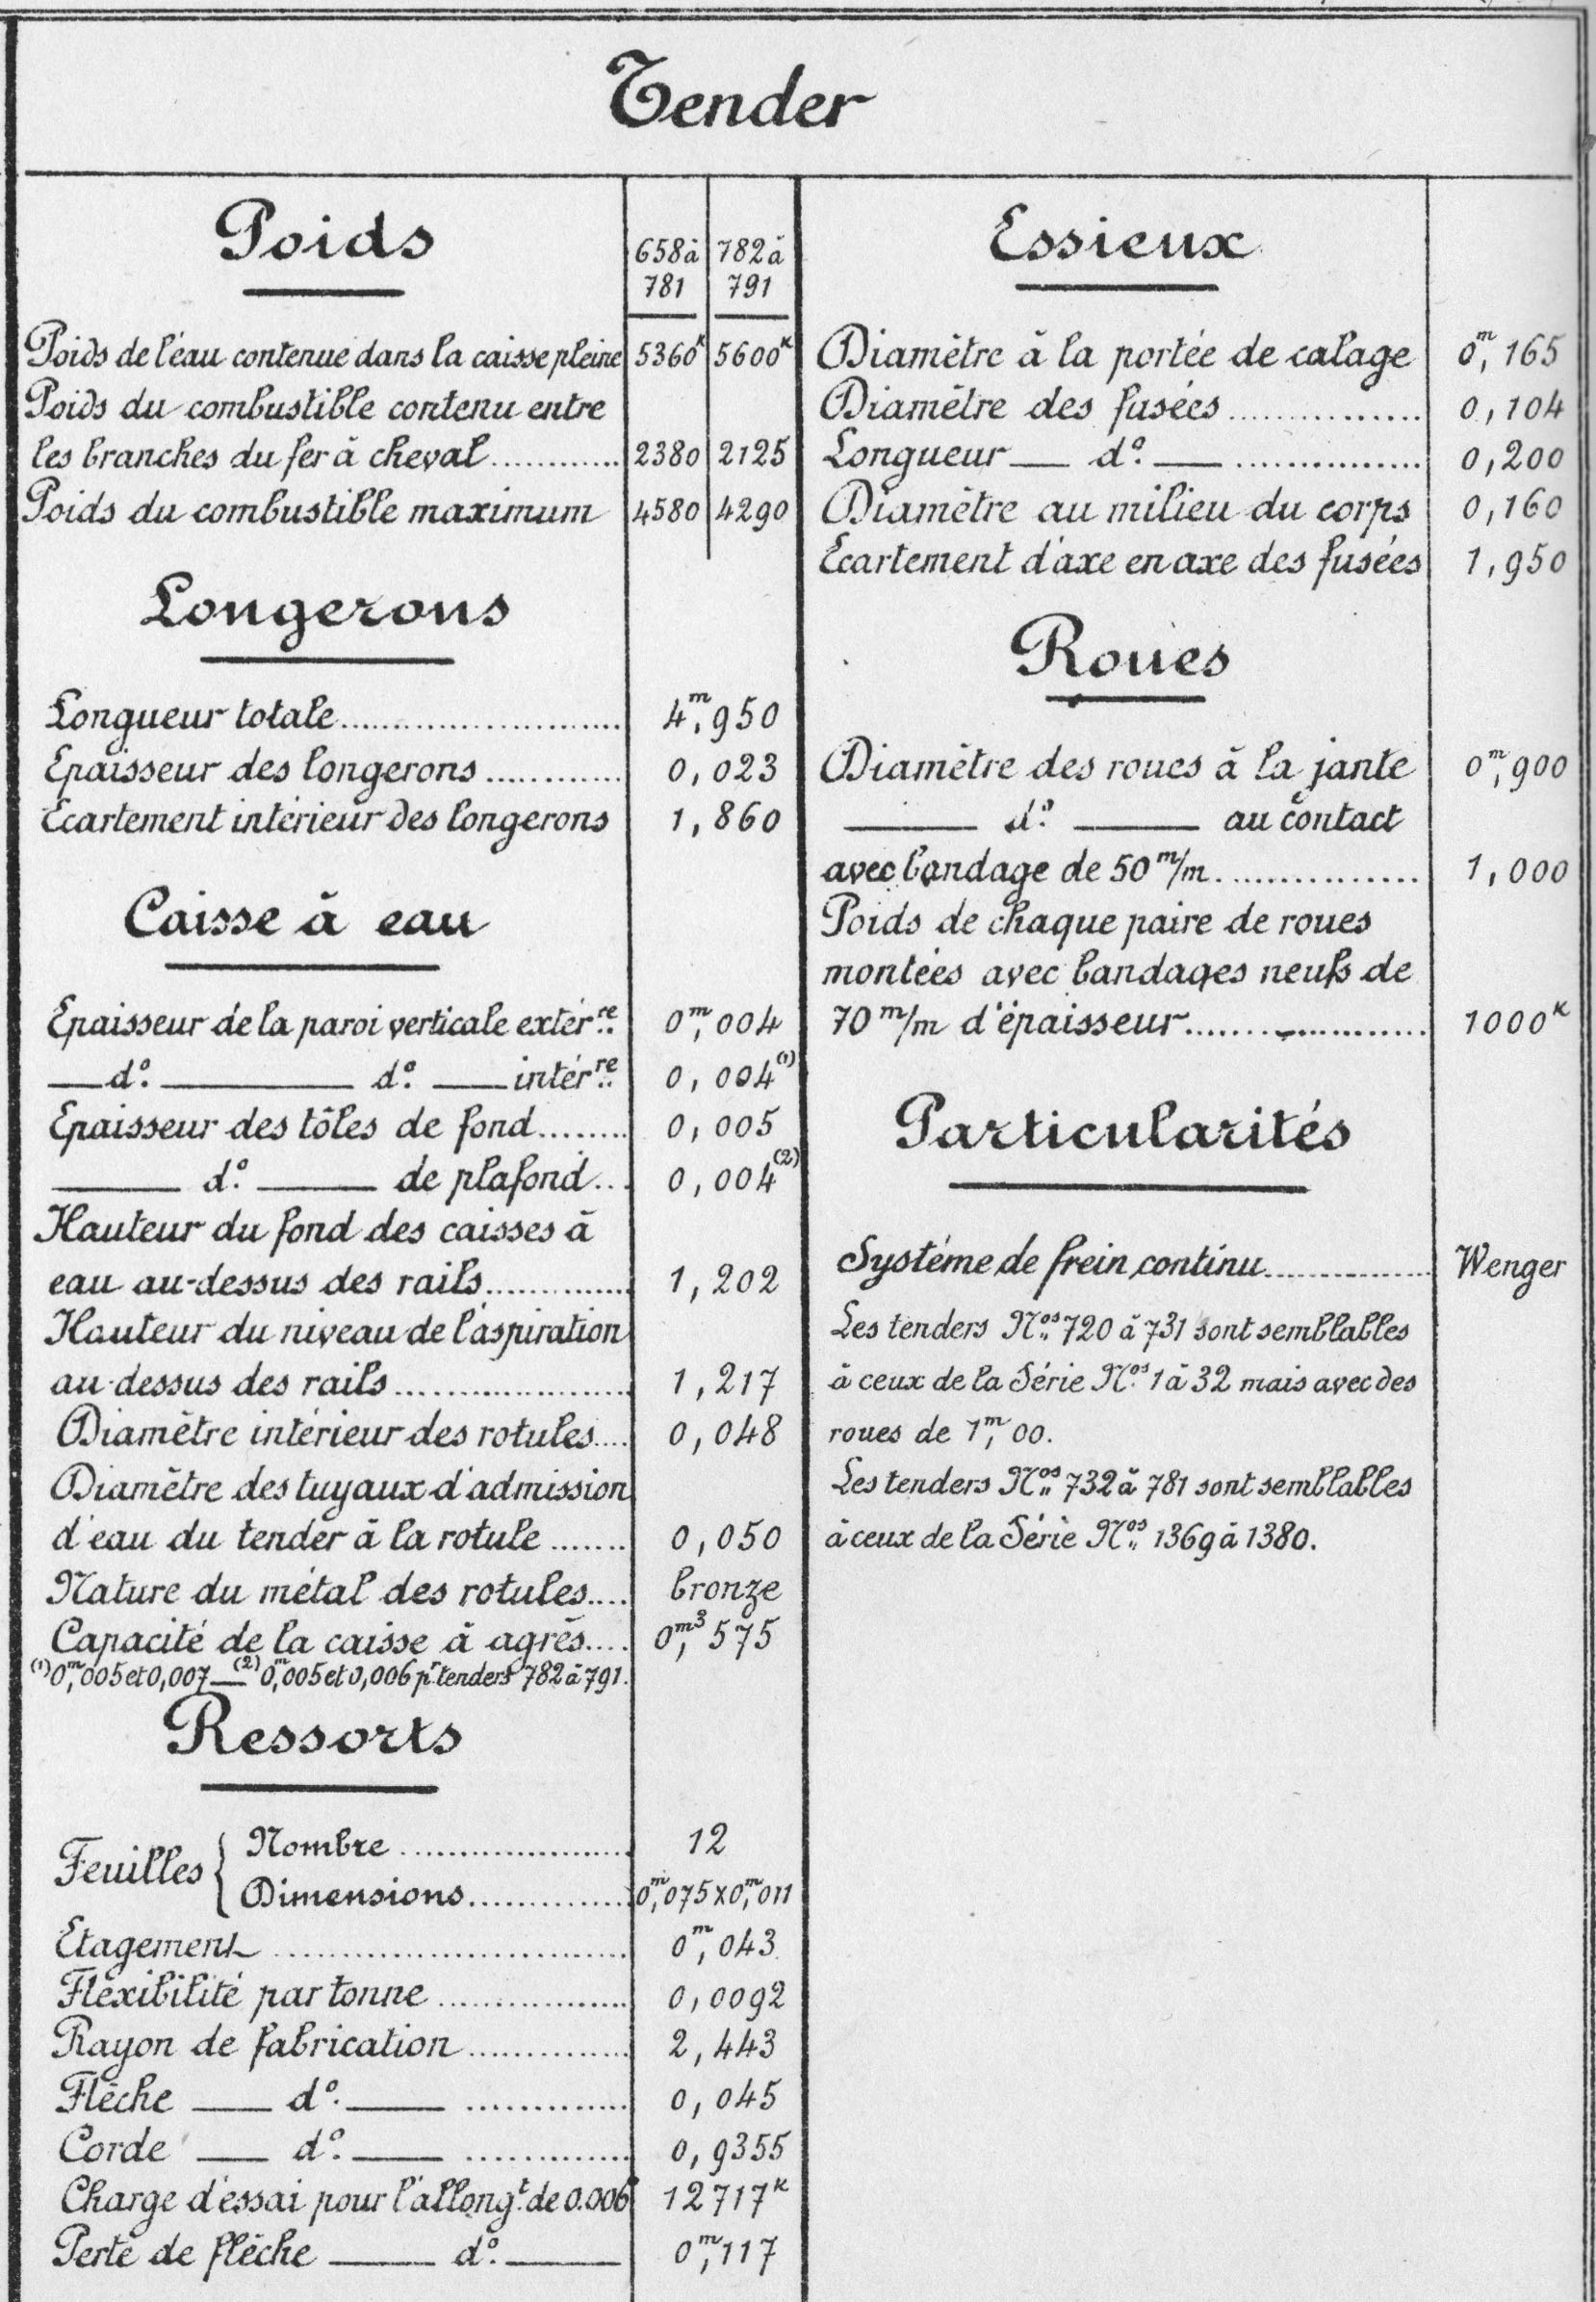 Tender
Poids
658 à 782 à
781 791
Poids de l'eau contenue dans la caisse pleine 5360ᵏ 5600ᵏ
Poids du combustible contenu entre
les branches du fer à cheval............ 2380 2125
Poids du combustible maximum 4580 4290
Longerons
Longueur totale........................ 4ᵐ,950
Epaisseur des longerons............ 0,023
Ecartement intérieur des longerons 1,860
Caisse à eau
Epaisseur de la paroi verticale extérʳᵉ 0ᵐ,004
— dº — dº — intérʳᵉ 0,004⁽¹⁾
Epaisseur des tôles de fond........ 0,005
— dº — de plafond... 0,004⁽²⁾
Hauteur du fond des caisses à
eau au-dessus des rails............. 1,202
Hauteur du niveau de l'aspiration
au-dessus des rails.................... 1,217
Diamètre intérieur des rotules.... 0,048
Diamètre des tuyaux d'admission
d'eau du tender à la rotule....... 0,050
Nature du métal des rotules.... bronze
Capacité de la caisse à agrès.... 0ᵐ³,575
⁽¹⁾ 0ᵐ,005 et 0,007 — ⁽²⁾ 0ᵐ,005 et 0,006 pʳ tenders 782 à 791.
Ressorts
Feuilles { Nombre..................... 12
Dimensions............. 0ᵐ,075 x 0ᵐ,011
Etagement.............................. 0ᵐ,043
Fléxibilité par tonne.................. 0,0092
Rayon de fabrication.............. 2,443
Flèche — dº — .............. 0,045
Corde — dº — .............. 0,9355
Charge d'éssai pour l'allongᵗ de 0.006 12717ᵏ
Perte de flèche — dº — 0ᵐ,117
Essieux
Diamètre à la portée de calage 0ᵐ,165
Diamètre des fusées............... 0,104
Longueur — dº — ................ 0,200
Diamètre au milieu du corps 0,160
Ecartement d'axe en axe des fusées 1,950
Roues
Diamètre des roues à la jante 0ᵐ,900
— dº — au contact
avec bandage de 50 ᵐ/m................ 1,000
Poids de chaque paire de roues
montées avec bandages neufs de
70 ᵐ/m d'épaisseur.................... 1000ᵏ
Particularités
Système de frein continu.............. Wenger
Les tenders Nᵒˢ 720 à 731 sont semblables
à ceux de la Série Nᵒˢ 1 à 32 mais avec des
roues de 1ᵐ,00.
Les tenders Nᵒˢ 732 à 781 sont semblables
à ceux de la Série Nᵒˢ 1369 à 1380.